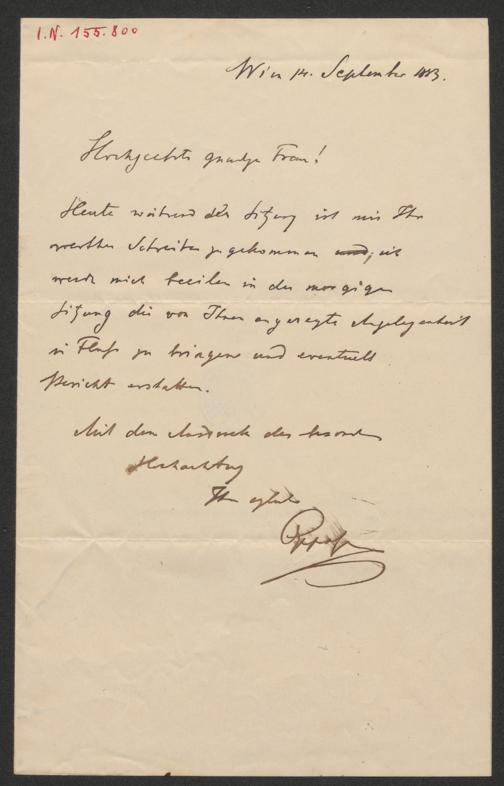 I.N. 155.800
Wien 14. September 1883.
Hochgeehrte gnädige Frau!
Heute während der Sitzung ist mir Ihr
werthes Schreiben zugekommen und, ich
werde mich beeilen in der morgigen
Sitzung die von Ihnen angeregte Angelegenheit
in Fluß zu bringen und eventuell
Bericht erstatten.
Mit dem Ausdrucke der besonderen
Hochachtung
Ihr